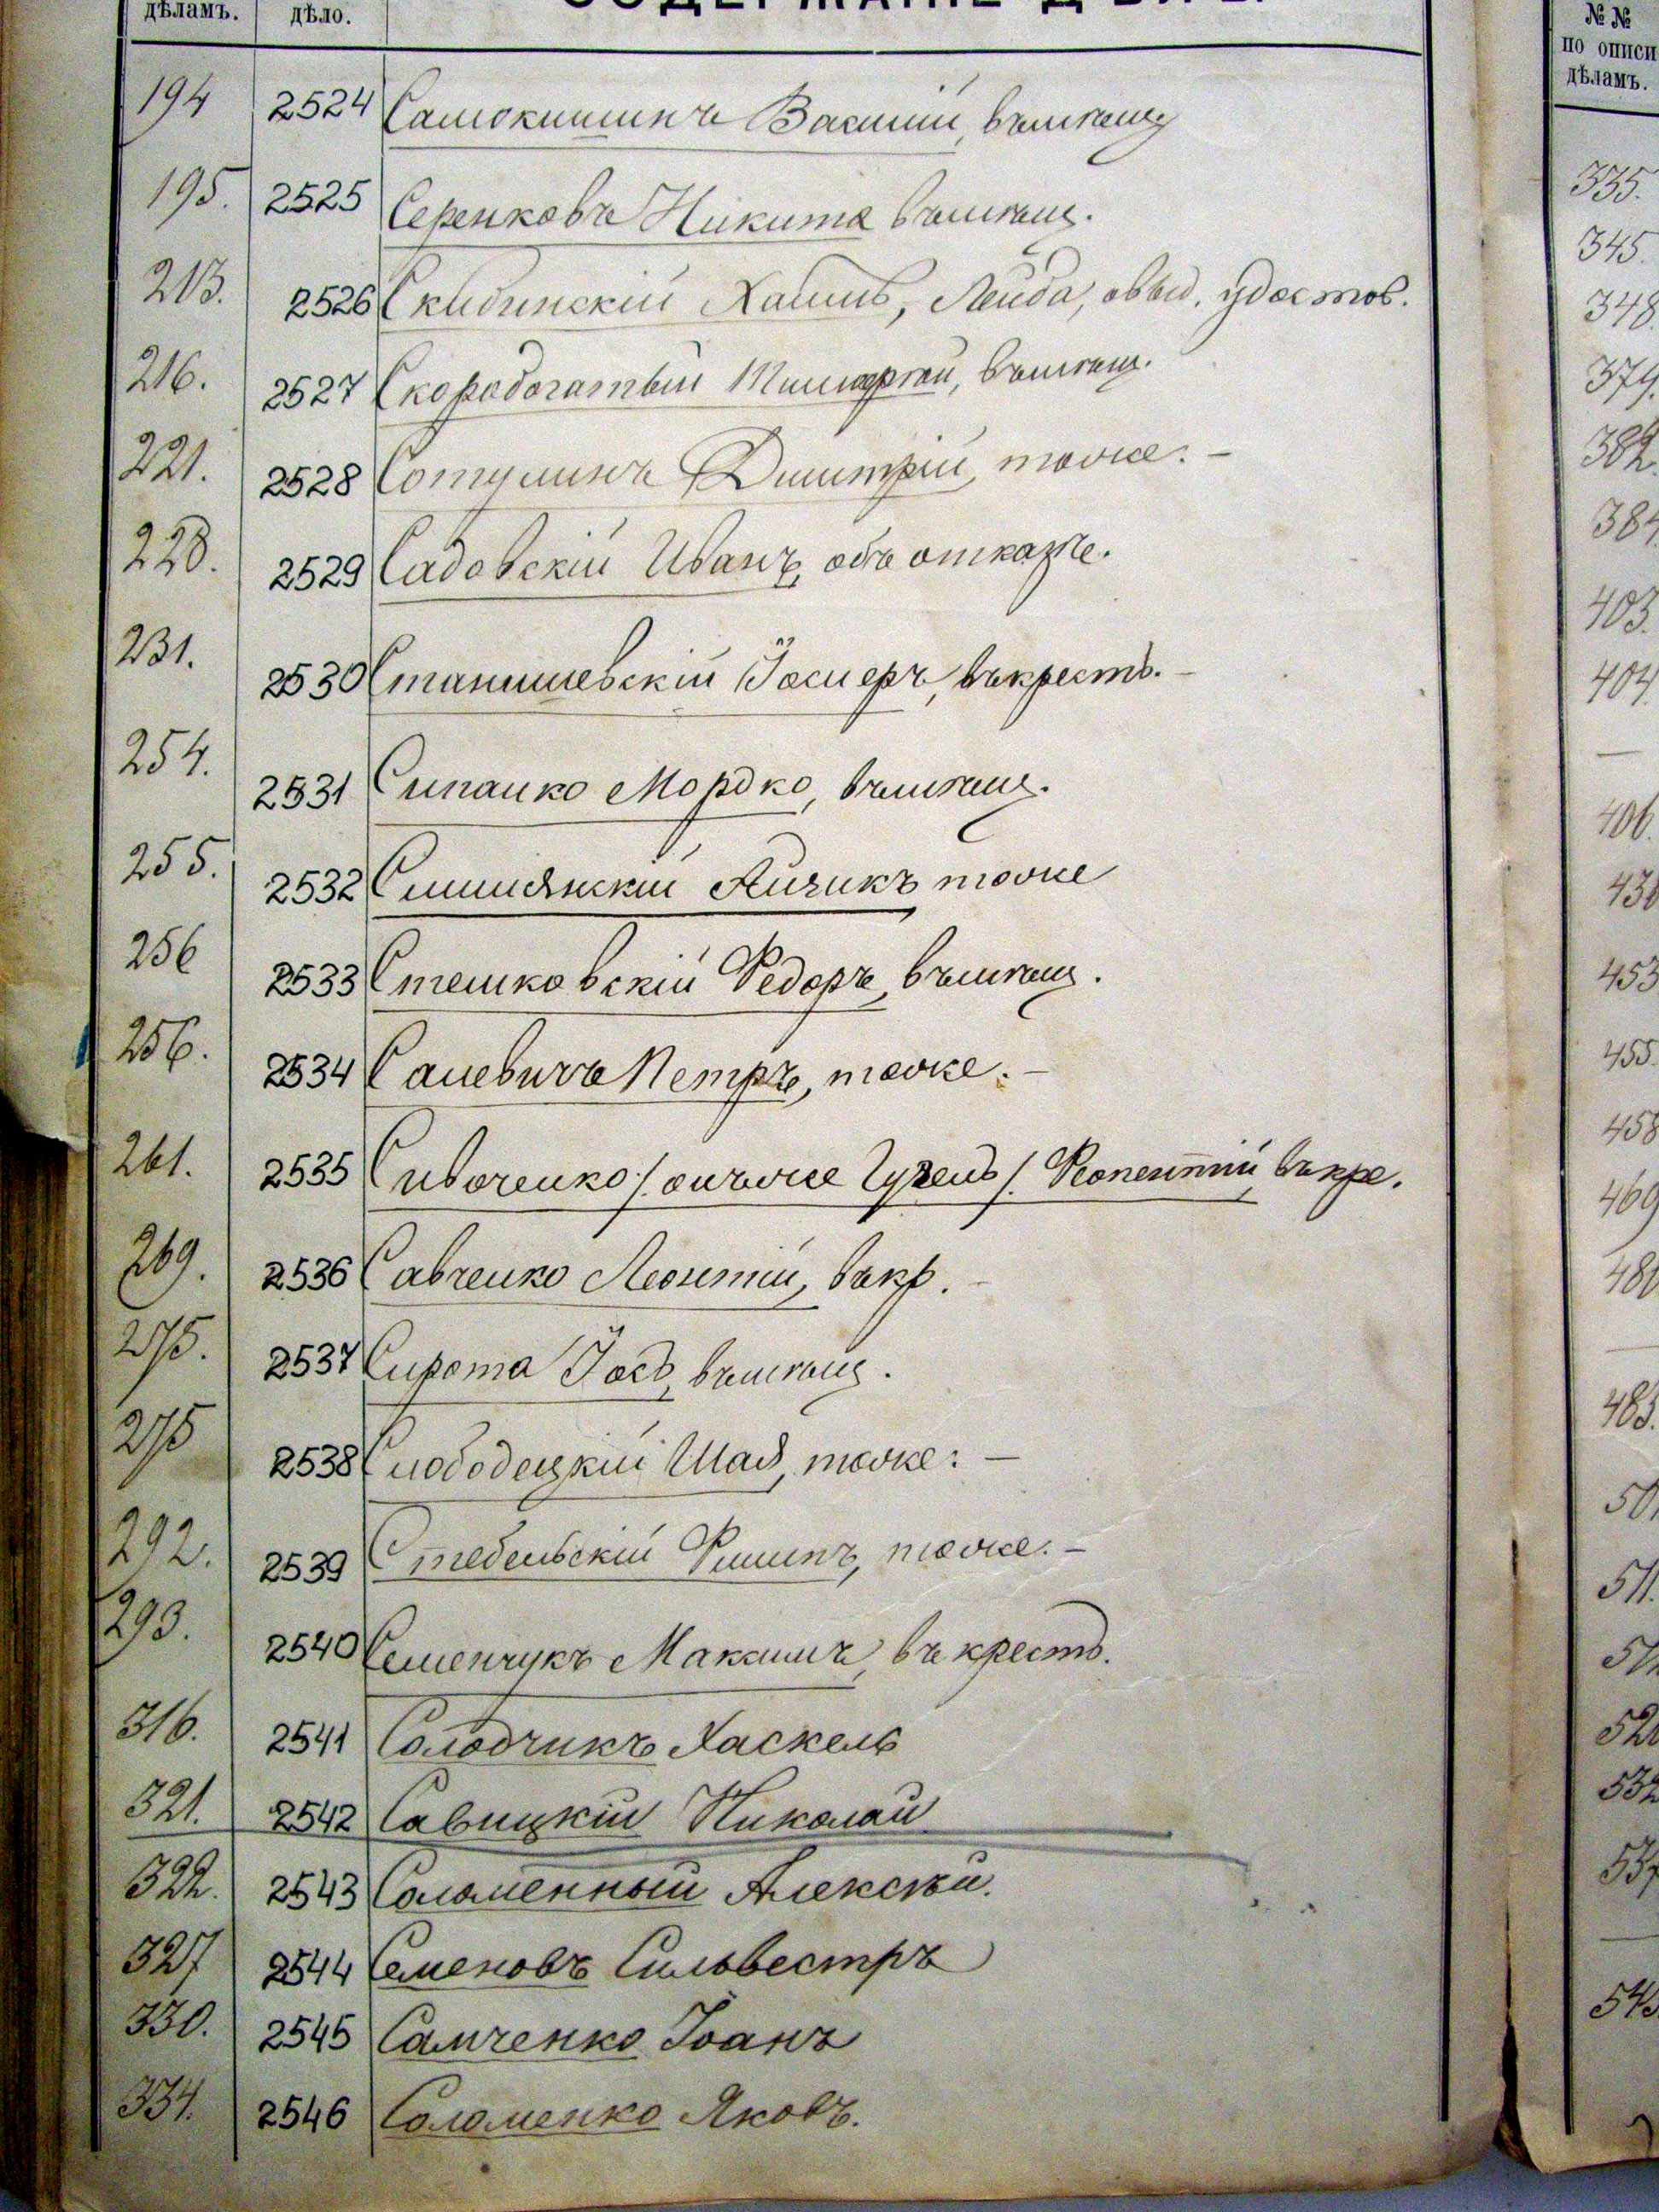 дѣламъ. дѣло. СОДЕРЖАНІЕ ДѢЛЪ
194 2524 Самокишинъ Василій, въ мѣщ
195. 2525 Серенковъ Никита въ мѣщ.
213. 2526 Скибинскій Хаимъ, Лейба, о выд. удостов.
216. 2527 Скоробогатый въ мѣщ.
221. 2528 Сотулинъ Дмитрій, тоже. –
228. 2529 Садовскій Иванъ, объ отказѣ.
231. 2530 Станишевскій въ крестъ. –
254. 2531 Сипайко Мордко, въ мѣщ.
255. 2532 Айзикъ тоже
256 2533 Стешковскій Федоръ, въ мѣщ.
256. 2534 Саневичъ Петръ, тоже. –
261. 2535 Сивоченко /онъ же / въ кре.
269. 2536 Савченко Леонтій, въ кр. –
275. 2537 Сирота Іось, въ мѣщ.
275 2538 Слободецкій Шая, тоже: –
292. 2539 Стебельскій Филипъ, тоже. –
293. 2540 Семенчукъ Максимъ, въ крестъ.
316. 2541 Солодчикъ Хаскель
321. 2542 Савицкій Николай
322. 2543 Соломенный Алексѣй.
327 2544 Семеновъ Сильвестръ
330. 2545 Самченко Іоанъ
334. 2546 Соломенко Яковъ.
№ №
по описи
дѣламъ.
335.
345.
348
379.
382.
384
403.
404.
406.
453
455
458
469
480
483.
511.